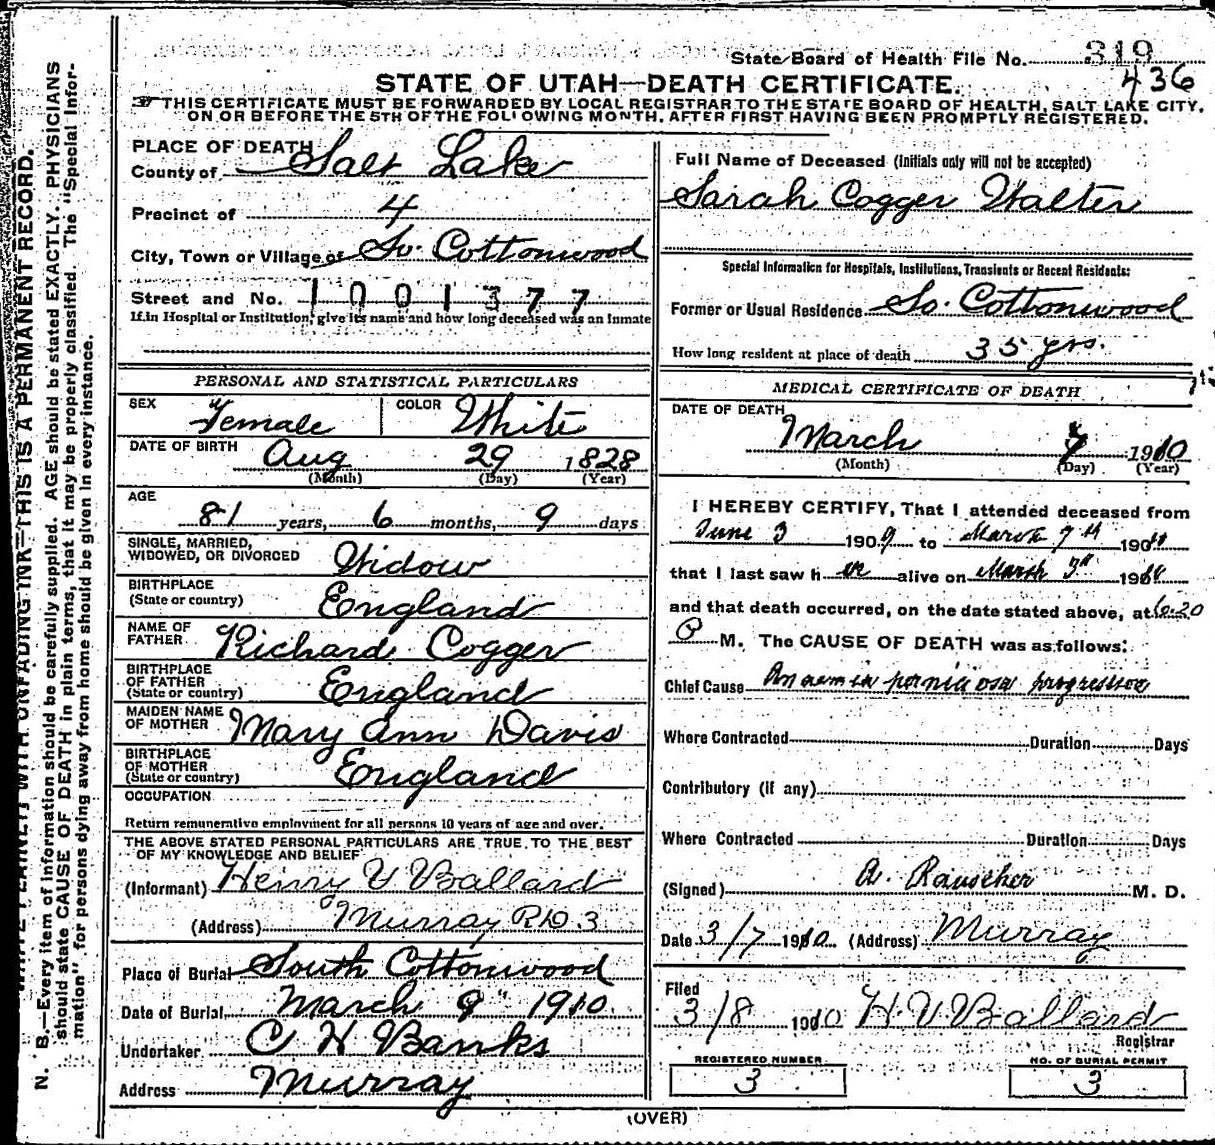 State Board of Health File No. 319
436
STATE OF UTAH—DEATH CERTIFICATE.
THIS CERTIFICATE MUST BE FORWARDED BY LOCAL REGISTRAR TO THE STATE BOARD OF HEALTH, SALT LAKE CITY,
ON OR BEFORE THE 5TH OF THE FOLLOWING MONTH, AFTER FIRST HAVING BEEN PROMPTLY REGISTERED.
PLACE OF DEATH
County of Salt Lake
Precinct of 4
City, Town or Village of So. Cottonwood
Street and No. 1001377
If in Hospital or Institution, give its name and how long deceased was an Inmate
PERSONAL AND STATISTICAL PARTICULARS
SEX Female COLOR White
DATE OF BIRTH Aug 29 1828
(Month) (Day) (Year)
AGE
81 years, 6 months, 9 days
SINGLE, MARRIED,
WIDOWED, OR DIVORCED Widow
BIRTHPLACE
(State or country) England
NAME OF
FATHER Richard Cogger
BIRTHPLACE
OF FATHER
(State or country) England
MAIDEN NAME
OF MOTHER Mary Ann Davis
BIRTHPLACE
OF MOTHER
(State or country) England
OCCUPATION
Return remunerative employment for all persons 10 years of age and over.
THE ABOVE STATED PERSONAL PARTICULARS ARE TRUE TO THE BEST
OF MY KNOWLEDGE AND BELIEF
(Informant) Henry V Ballard
(Address) Murray RD 3
Place of Burial South Cottonwood
Date of Burial March 9" 1910
Undertaker C H Banks
Address Murray
Full Name of Deceased (Initials only will not be accepted)
Sarah Cogger Walter
Special Information for Hospitals, Institutions, Transients or Recent Residents:
Former or Usual Residence So. Cottonwood
How long resident at place of death 35 yrs.
MEDICAL CERTIFICATE OF DEATH
DATE OF DEATH
March 7 1910
(Month) (Day) (Year)
I HEREBY CERTIFY, That I attended deceased from
June 3 1909 to March 7th 1910
that I last saw her alive on March 3d 1910
and that death occurred, on the date stated above, at 6.20
P M. The CAUSE OF DEATH was as follows:
Chief Cause Anaemia perniciosa progressiva
Where Contracted Duration Days
Contributory (if any)
Where Contracted Duration Days
(Signed) A. Rauscher M. D.
Date 3/7 1910 (Address) Murray
Filed
3/8 1910 H. V. Ballard
Registrar
REGISTERED NUMBER
3
NO. OF BURIAL PERMIT
3
(OVER)
N. B.—Every item of information should be carefully supplied. AGE should be stated EXACTLY. PHYSICIANS
should state CAUSE OF DEATH in plain terms, that it may be properly classified. The "Special Infor-
mation" for persons dying away from home should be given in every instance.
WITH UNFADING INK—THIS IS A PERMANENT RECORD.